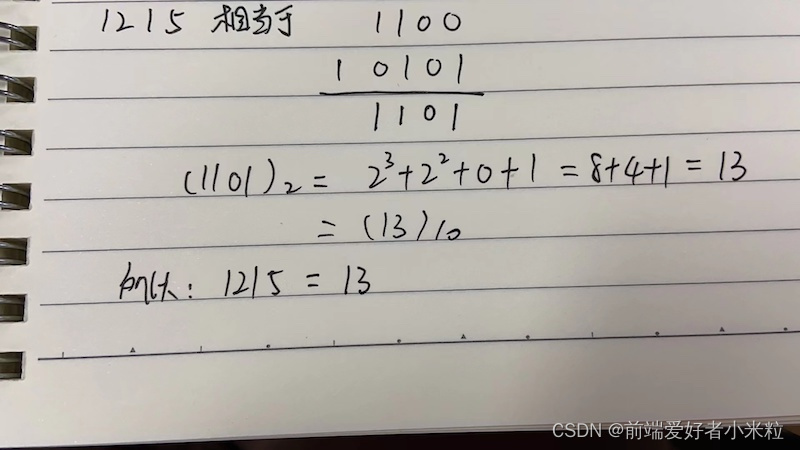 1215 相当于 1100
1 0101
1101
(1101)₂ = 2³+2²+0+1 = 8+4+1 = 13
= (13)₁₀
所以: 1215 = 13
CSDN @前端爱好者小米粒